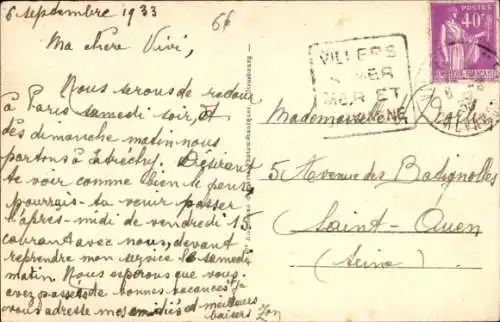 6 septembre 1933
6f
Ma chère Vivi,
Nous serons de retour
à Paris samedi soir, et
dès demanche matin nous
partons à Etrechy. Desirant
te voir comme bien le pense
pourrais-tu venir passer
l'après-midi de vendredi 15
cabrant avec nous, devant
reprendre mon service le samedi
matin. Nous esperons que vous
avez passés de bonnes vacances. Je
vous adresse mes amitiés et meilleurs
baisers Zon
VILLERS
S MER
MER ET
POSTES
40c
Mademoiselle
5 Avenue des Batignolles
Saint-Ouen
(Seine)